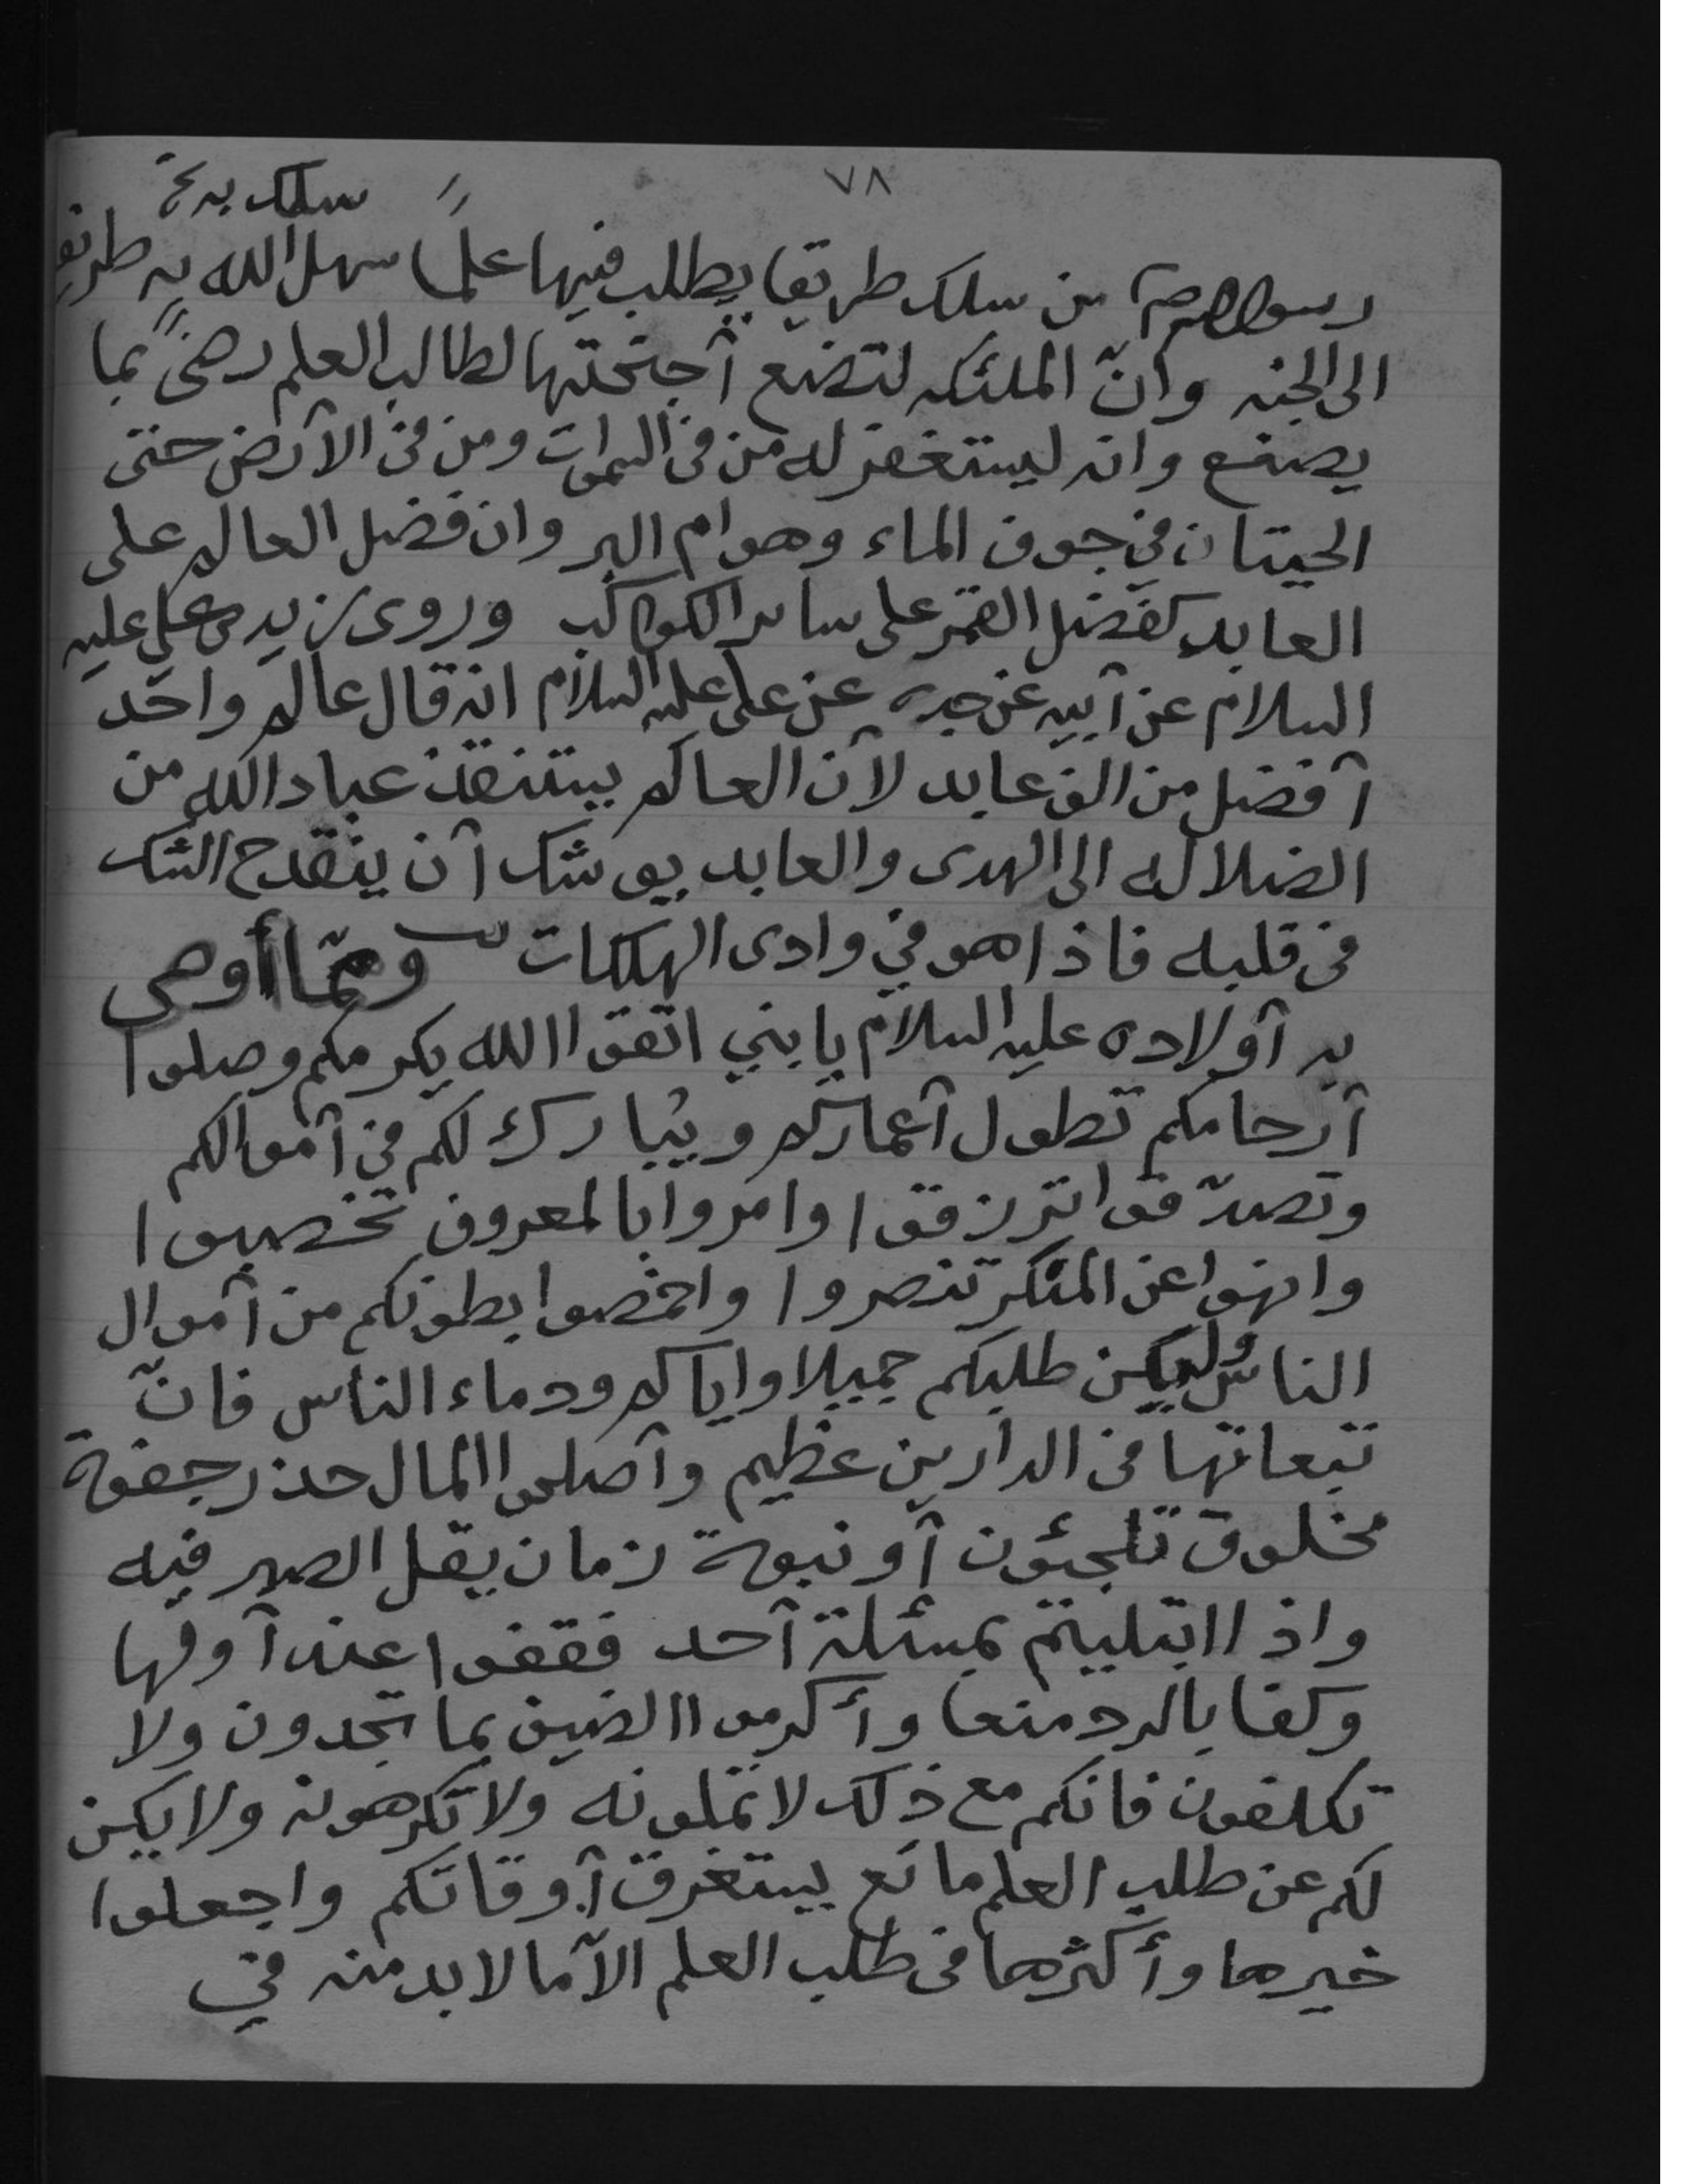 ٧٨
سلك به نخ
رسول الله صلم من سلك طريقا يطلب فيها علمًا سهل الله به طريقا
الى الجنه وانّ الملئكه لتضع أجنحتها لطالب العلم رضىً بما
يصنع وانه ليستغفر له من في السموات ومن في الأرض حتى
الحيتان في جوف الماء وهوام البر وان فضل العالم على
العابد كفضل القمر على سائر الكواكب وروى زيد بن علي عليه
السلام عن أبيه عن جده عن علي عليه السلام انه قال عالم واحد
أفضل من الف عابد لأن العالم يستنقذ عباد الله من
الضلاله الى الهدى والعابد يوشك أن ينقدح الشك
في قلبه فاذا هو في وادى الهلكات ومما أوصى
به أولاده عليه السلام يا بني اتقوا الله يكرمكم وصلوا
أرحامكم تطول أعماركم ويبارك لكم في أموالكم
وتصدّقوا ترزقوا وامروا بالمعروف تخصبوا
وانهوا عن المنكر تنصروا واخمصوا بطونكم من أموال
الناس وليكن طلبكم جميلا واياكم ودماء الناس فانّ
تبعاتها في الدارين عظيم وأصلحوا المال حذر جفوة
مخلوق تلجئون أو نبوة زمان يقل الصبر فيه
واذا ابتليتم بمسئلة أحد فقفوا عند أولها
وكفا بالرد منعا وأكرموا الضيف بما تجدون ولا
تكلفون فانكم مع ذلك لا تملونه ولا تكرهونه ولا يكن
لكم عن طلب العلم مانع يستغرق أوقاتكم واجعلوا
خيرها وأكثرها في طلب العلم الا ما لا بد منه في